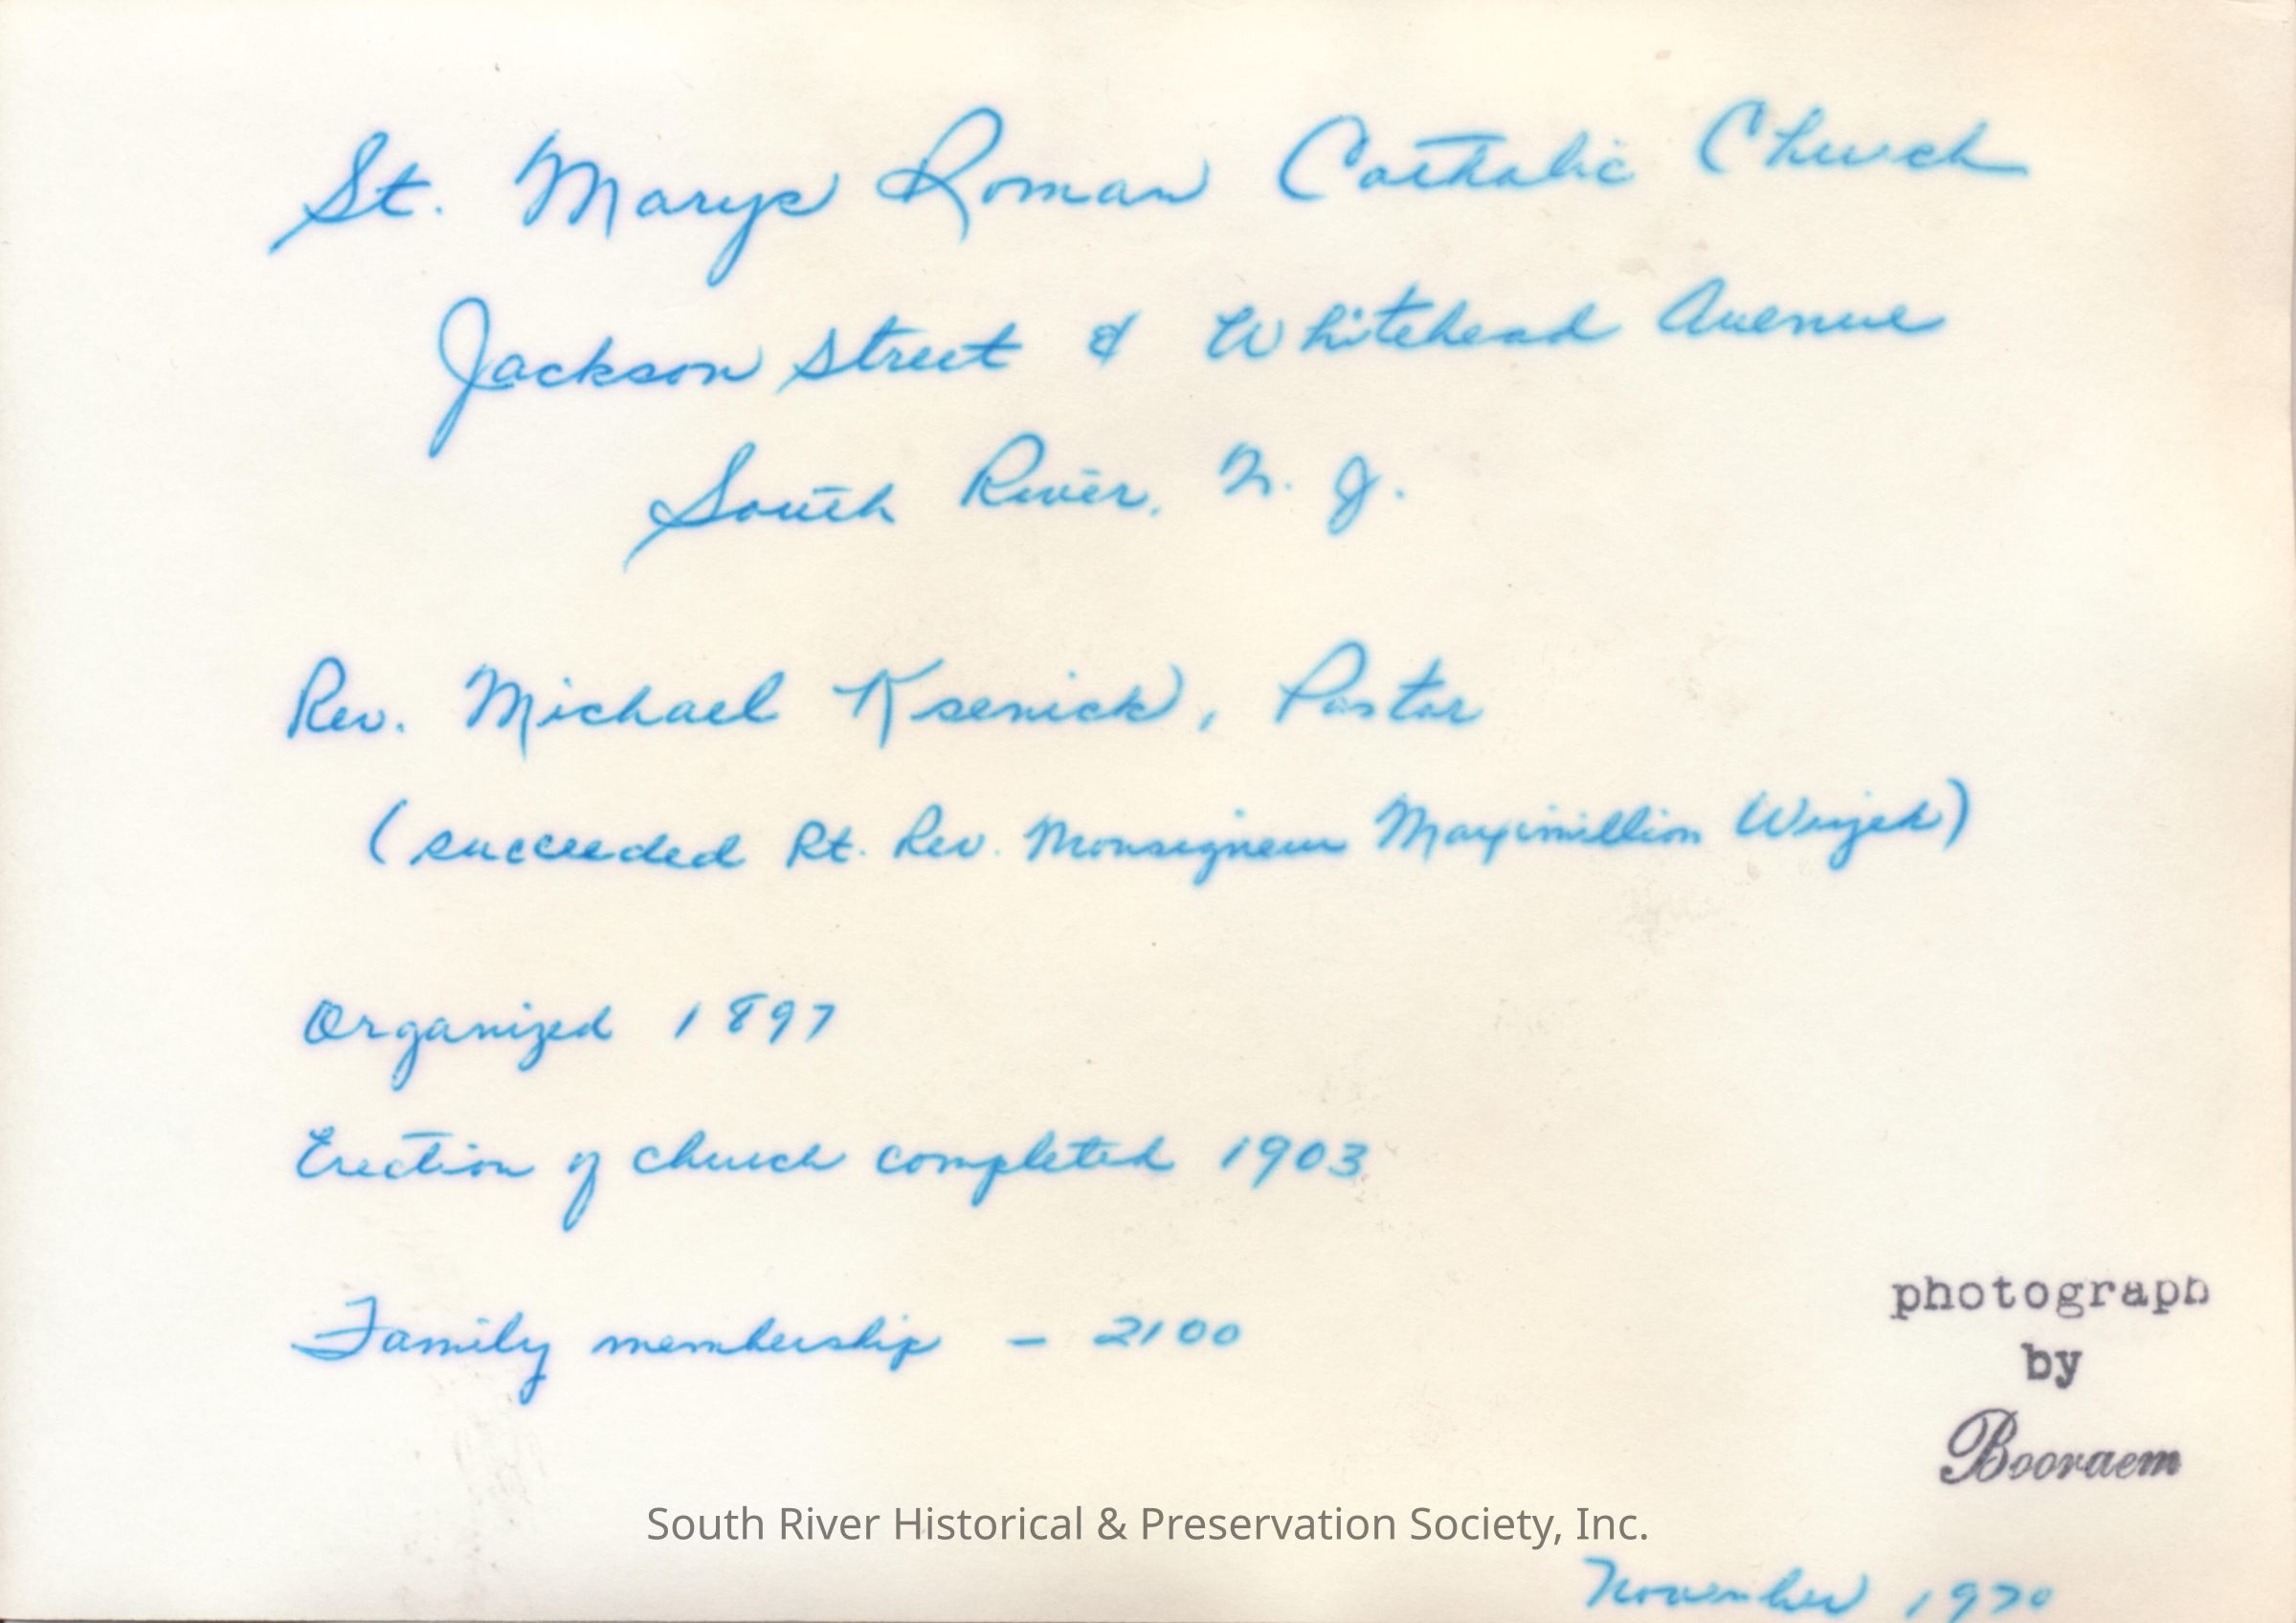 St. Marys Roman Catholic Church
Jackson Street & Whitehead Avenue
South River, N. J.
Rev. Michael Ksenick, Pastor
(succeeded Rt. Rev. Monsigneur Maximillion
Organized 1897
Erection of church completed 1903
Family membership - 2100
photograph
by
Booraem
South River Historical & Preservation Society, Inc.
November 1970